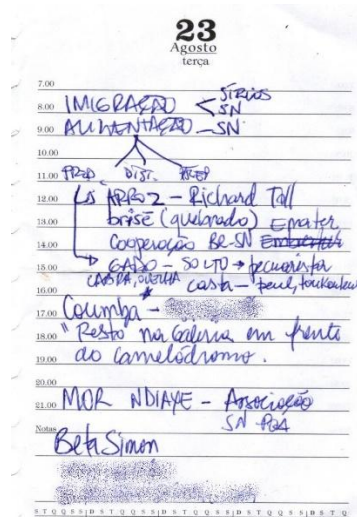 23
Agosto
terça
7.00
SÍRIOS
8.00 IMIGRAÇÃO < SN
9.00 ALIMENTAÇÃO - SN
10.00
11.00 PROD. DIST.
12.00 ARROZ - Richard Tall
13.00 brisé (quebrado) Emater
14.00 Cooperação BR-SN
15.00 GADO - SOLTO → pecuarista
CABRA, OVELHA
16.00 casta - peul, toukouleur
17.00 Coumba -
18.00 "Resto na Galeria em frente
19.00 do camelódromo.
20.00
21.00 MOR NDIAYE - Associação
SN - POA
Notas
Beta Simon
S T Q Q S S D S T Q Q S S D S T Q Q S S D S T Q Q S S D S T Q